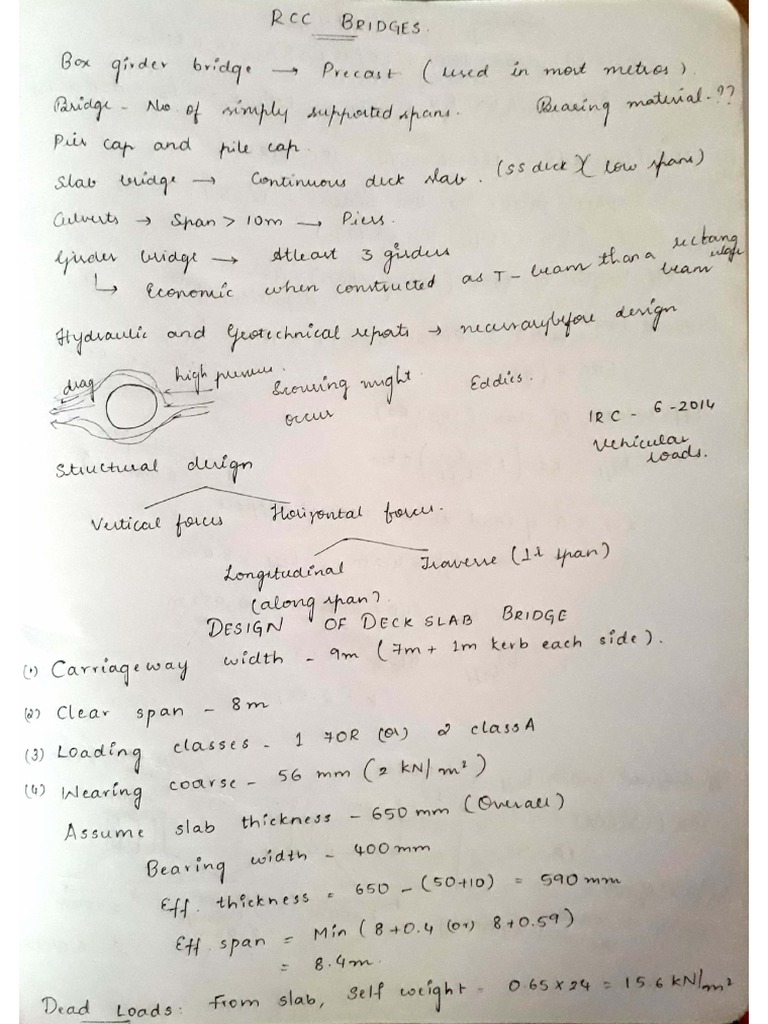 RCC BRIDGES.
Box girder bridge → Precast (used in most metros).
Bridge - No. of simply supported spans. Bearing material-??
Pier cap and pile cap.
Slab bridge → Continuous deck slab. (SS deck)(low spans)
Culverts → Span > 10m → Piers.
Girder bridge → Atleast 3 girders
↳ Economic when constructed as T-beam than a rectangular beam
Hydraulic and Geotechnical reports → necessary before design
drag high pressure. Scouring might occur Eddies.
IRC - 6-2014
Vehicular loads.
Structural design
Vertical forces Horizontal forces.
Longitudinal (along span) Traverse (⊥r span)
DESIGN OF DECK SLAB BRIDGE
(1) Carriageway width - 9m (7m + 1m kerb each side).
(2) Clear span - 8m
(3) Loading classes - 1 70R (or) 2 class A
(4) Wearing coarse - 56 mm (2 kN/m²)
Assume slab thickness - 650 mm (Overall)
Bearing width - 400mm
Eff. thickness = 650 - (50+10) = 590 mm
Eff. span = Min (8+0.4 (or) 8+0.59)
= 8.4m.
Dead Loads: From slab, Self weight = 0.65 x 24 = 15.6 kN/m²